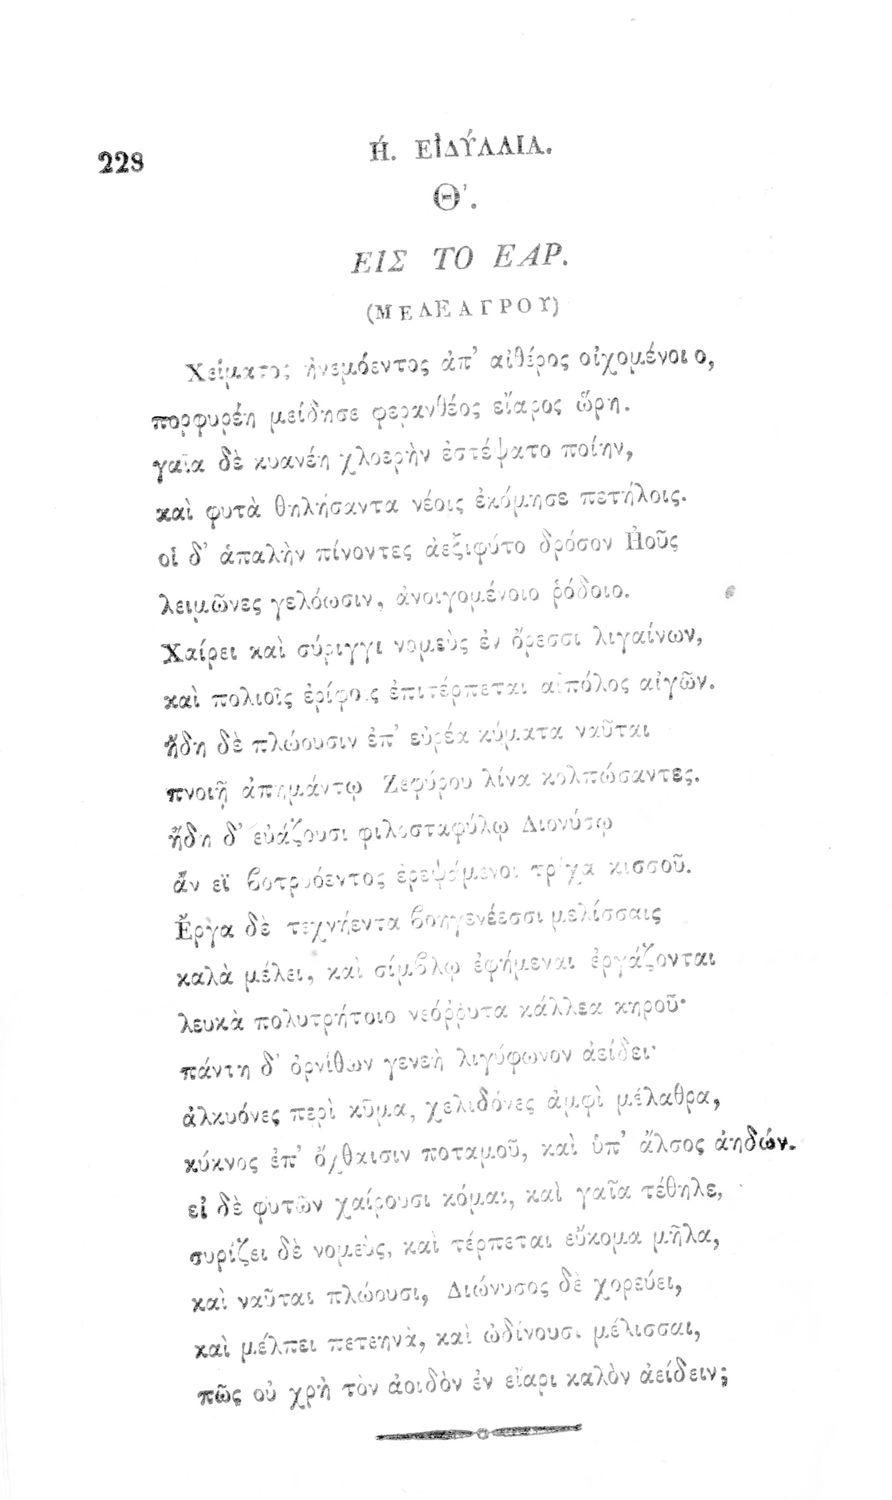 228
Ἠ. ΕἸΔΎΛΛΙΑ.
Θ'.
ΕΙΣ ΤΟ ΕΑΡ.
(ΜΕΛΕΑΓΡΟΥ)
Χείματος ἠνεμόεντος ἀπ' αἰθέρος οἰχομένοιο,
πορφυρέη μείδησε φερανθέος εἴαρος ὥρη.
γαῖα δὲ κυανέη χλοερὴν ἐστέψατο ποίην,
καὶ φυτὰ θηλήσαντα νέοις ἐκόμησε πετήλοις.
οἱ δ' ἁπαλὴν πίνοντες ἀεξιφύτο δρόσον Ἠοῦς
λειμῶνες γελόωσιν, ἀνοιγομένοιο ῥόδοιο.
Χαίρει καὶ σύριγγι νομεὺς ἐν ὄρεσσι λιγαίνων,
καὶ πολιοῖς ἐρίφοις ἐπιτέρπεται αἰπόλος αἰγῶν.
ἤδη δὲ πλώουσιν ἐπ' εὐρέα κύματα ναῦται
πνοιῇ ἀπημάντῳ Ζεφύρου λίνα κολπώσαντες.
ἤδη δ' εὐάζουσι φιλοσταφύλῳ Διονύσῳ
ἄν εϊ βοτρυόεντος ἐρεψάμενοι τρίχα κισσοῦ.
Ἔργα δὲ τεχνήεντα βοηγενέεσσι μελίσσαις
καλὰ μέλει, καὶ σίμβλῳ ἐφήμεναι ἐργάζονται
λευκὰ πολυτρήτοιο νεόῤῥυτα κάλλεα κηροῦ·
πάντη δ' ὀρνίθων γενεὴ λιγύφωνον ἀείδει·
ἀλκυόνες περὶ κῦμα, χελιδόνες ἀμφὶ μέλαθρα,
κύκνος ἐπ' ὄχθαισιν ποταμοῦ, καὶ ὑπ' ἄλσος ἀηδών.
εἰ δὲ φυτῶν χαίρουσι κόμαι, καὶ γαῖα τέθηλε,
συρίζει δὲ νομεὺς, καὶ τέρπεται εὔκομα μῆλα,
καὶ ναῦται πλώουσι, Διώνυσος δὲ χορεύει,
καὶ μέλπει πετεηνὰ, καὶ ὠδίνουσι μέλισσαι,
πῶς οὐ χρὴ τὸν ἀοιδὸν ἐν εἴαρι καλὸν ἀείδειν;